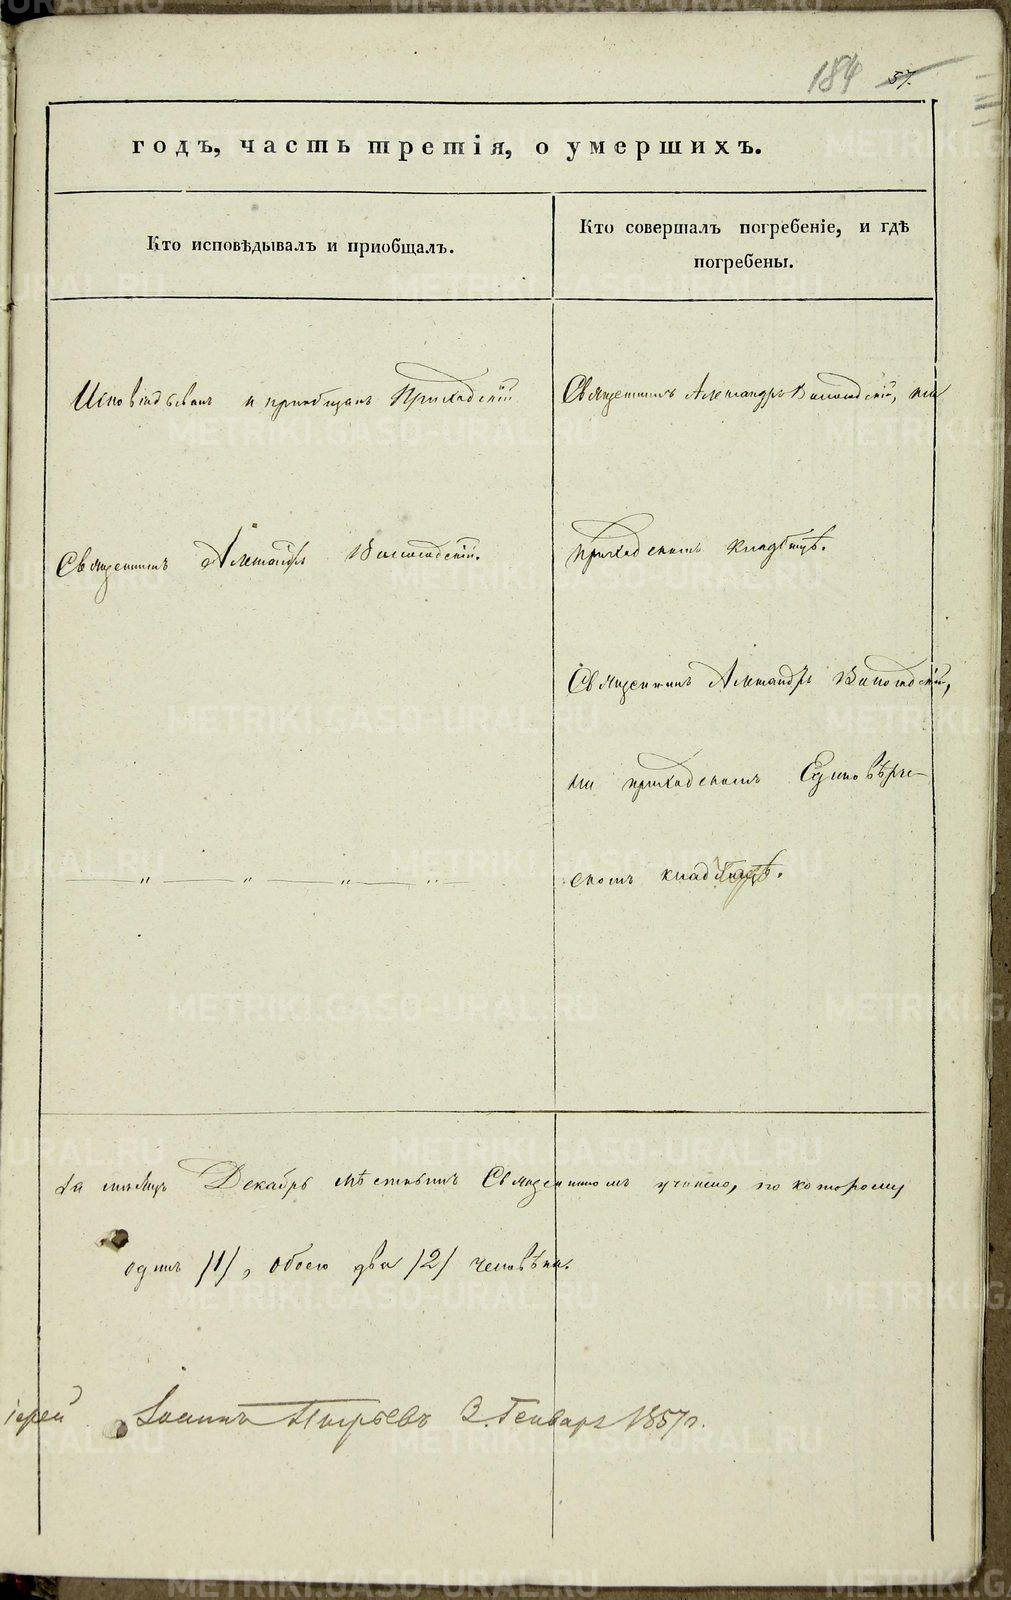 184 57.
годъ, часть третія, о умершихъ.
Кто исповѣдывалъ и приобщалъ.
Кто совершалъ погребеніе, и гдѣ
погребены.
Исповѣдывалъ и приобщалъ Приходскій
Священникъ Александръ
Священникъ Александръ на
приходскомъ кладбищѣ.
Священникъ Александръ
на приходскомъ Единовѣрче-
скомъ кладбищѣ.
" " " "
За мѣсяцъ Декабрь мѣстнымъ Священникомъ учинено, по которому
одинъ /1/, обоего два /2/ человѣка.
іерей Іоаннъ 3. Генваря 1857 г.
METRIKI.GASO-URAL.RU